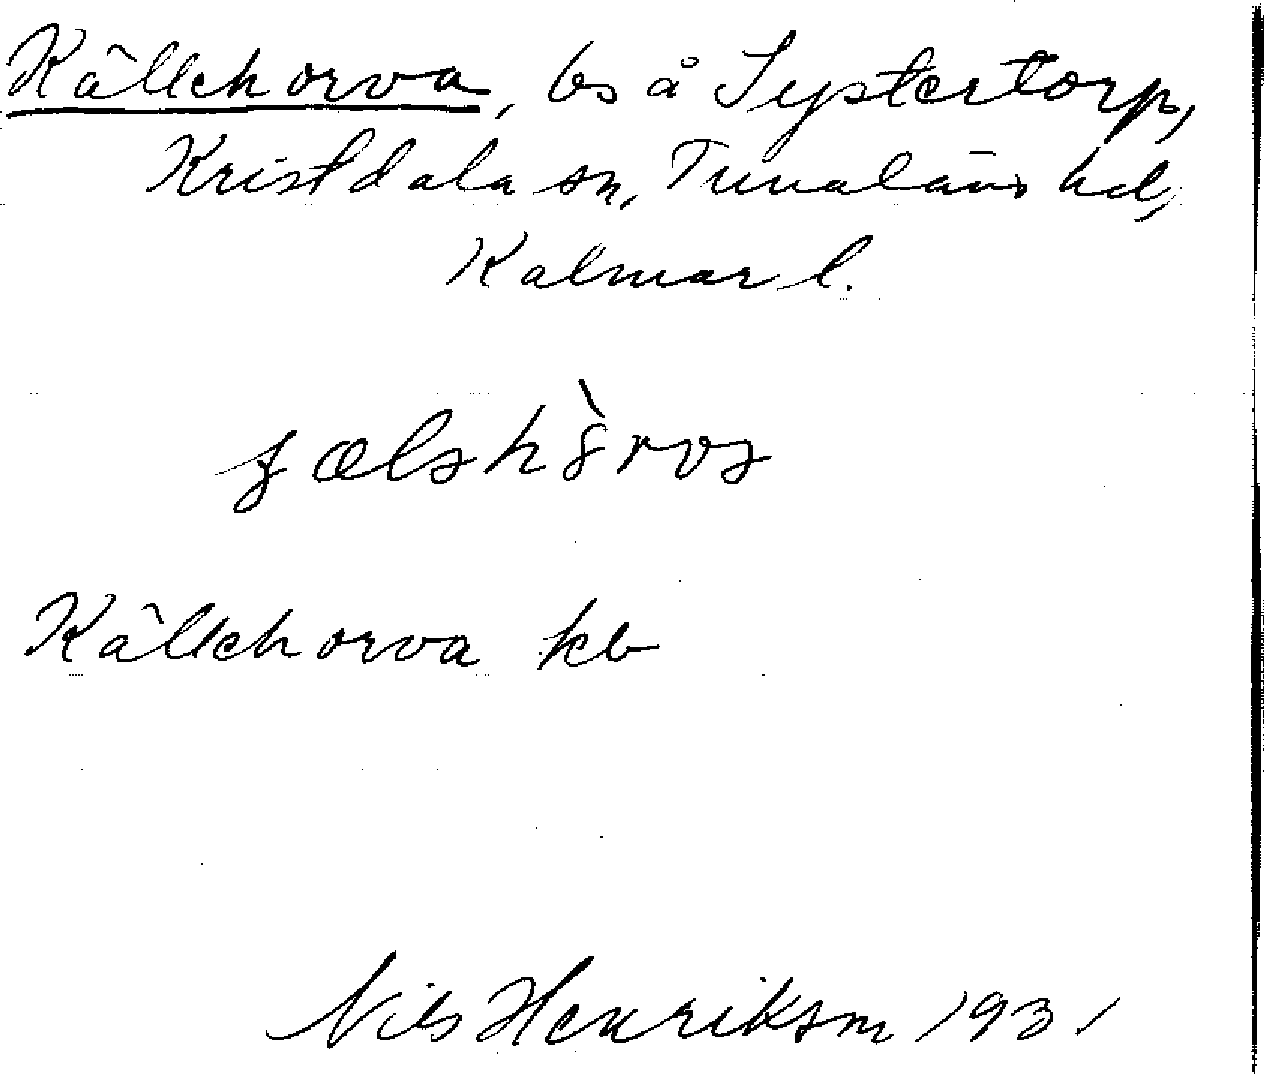 Källehorva, bs å Systertorp,
Kristdala sn, Tunaläns hd,
Kalmar l.
Källehorva kb
Nils Henriksson 1931